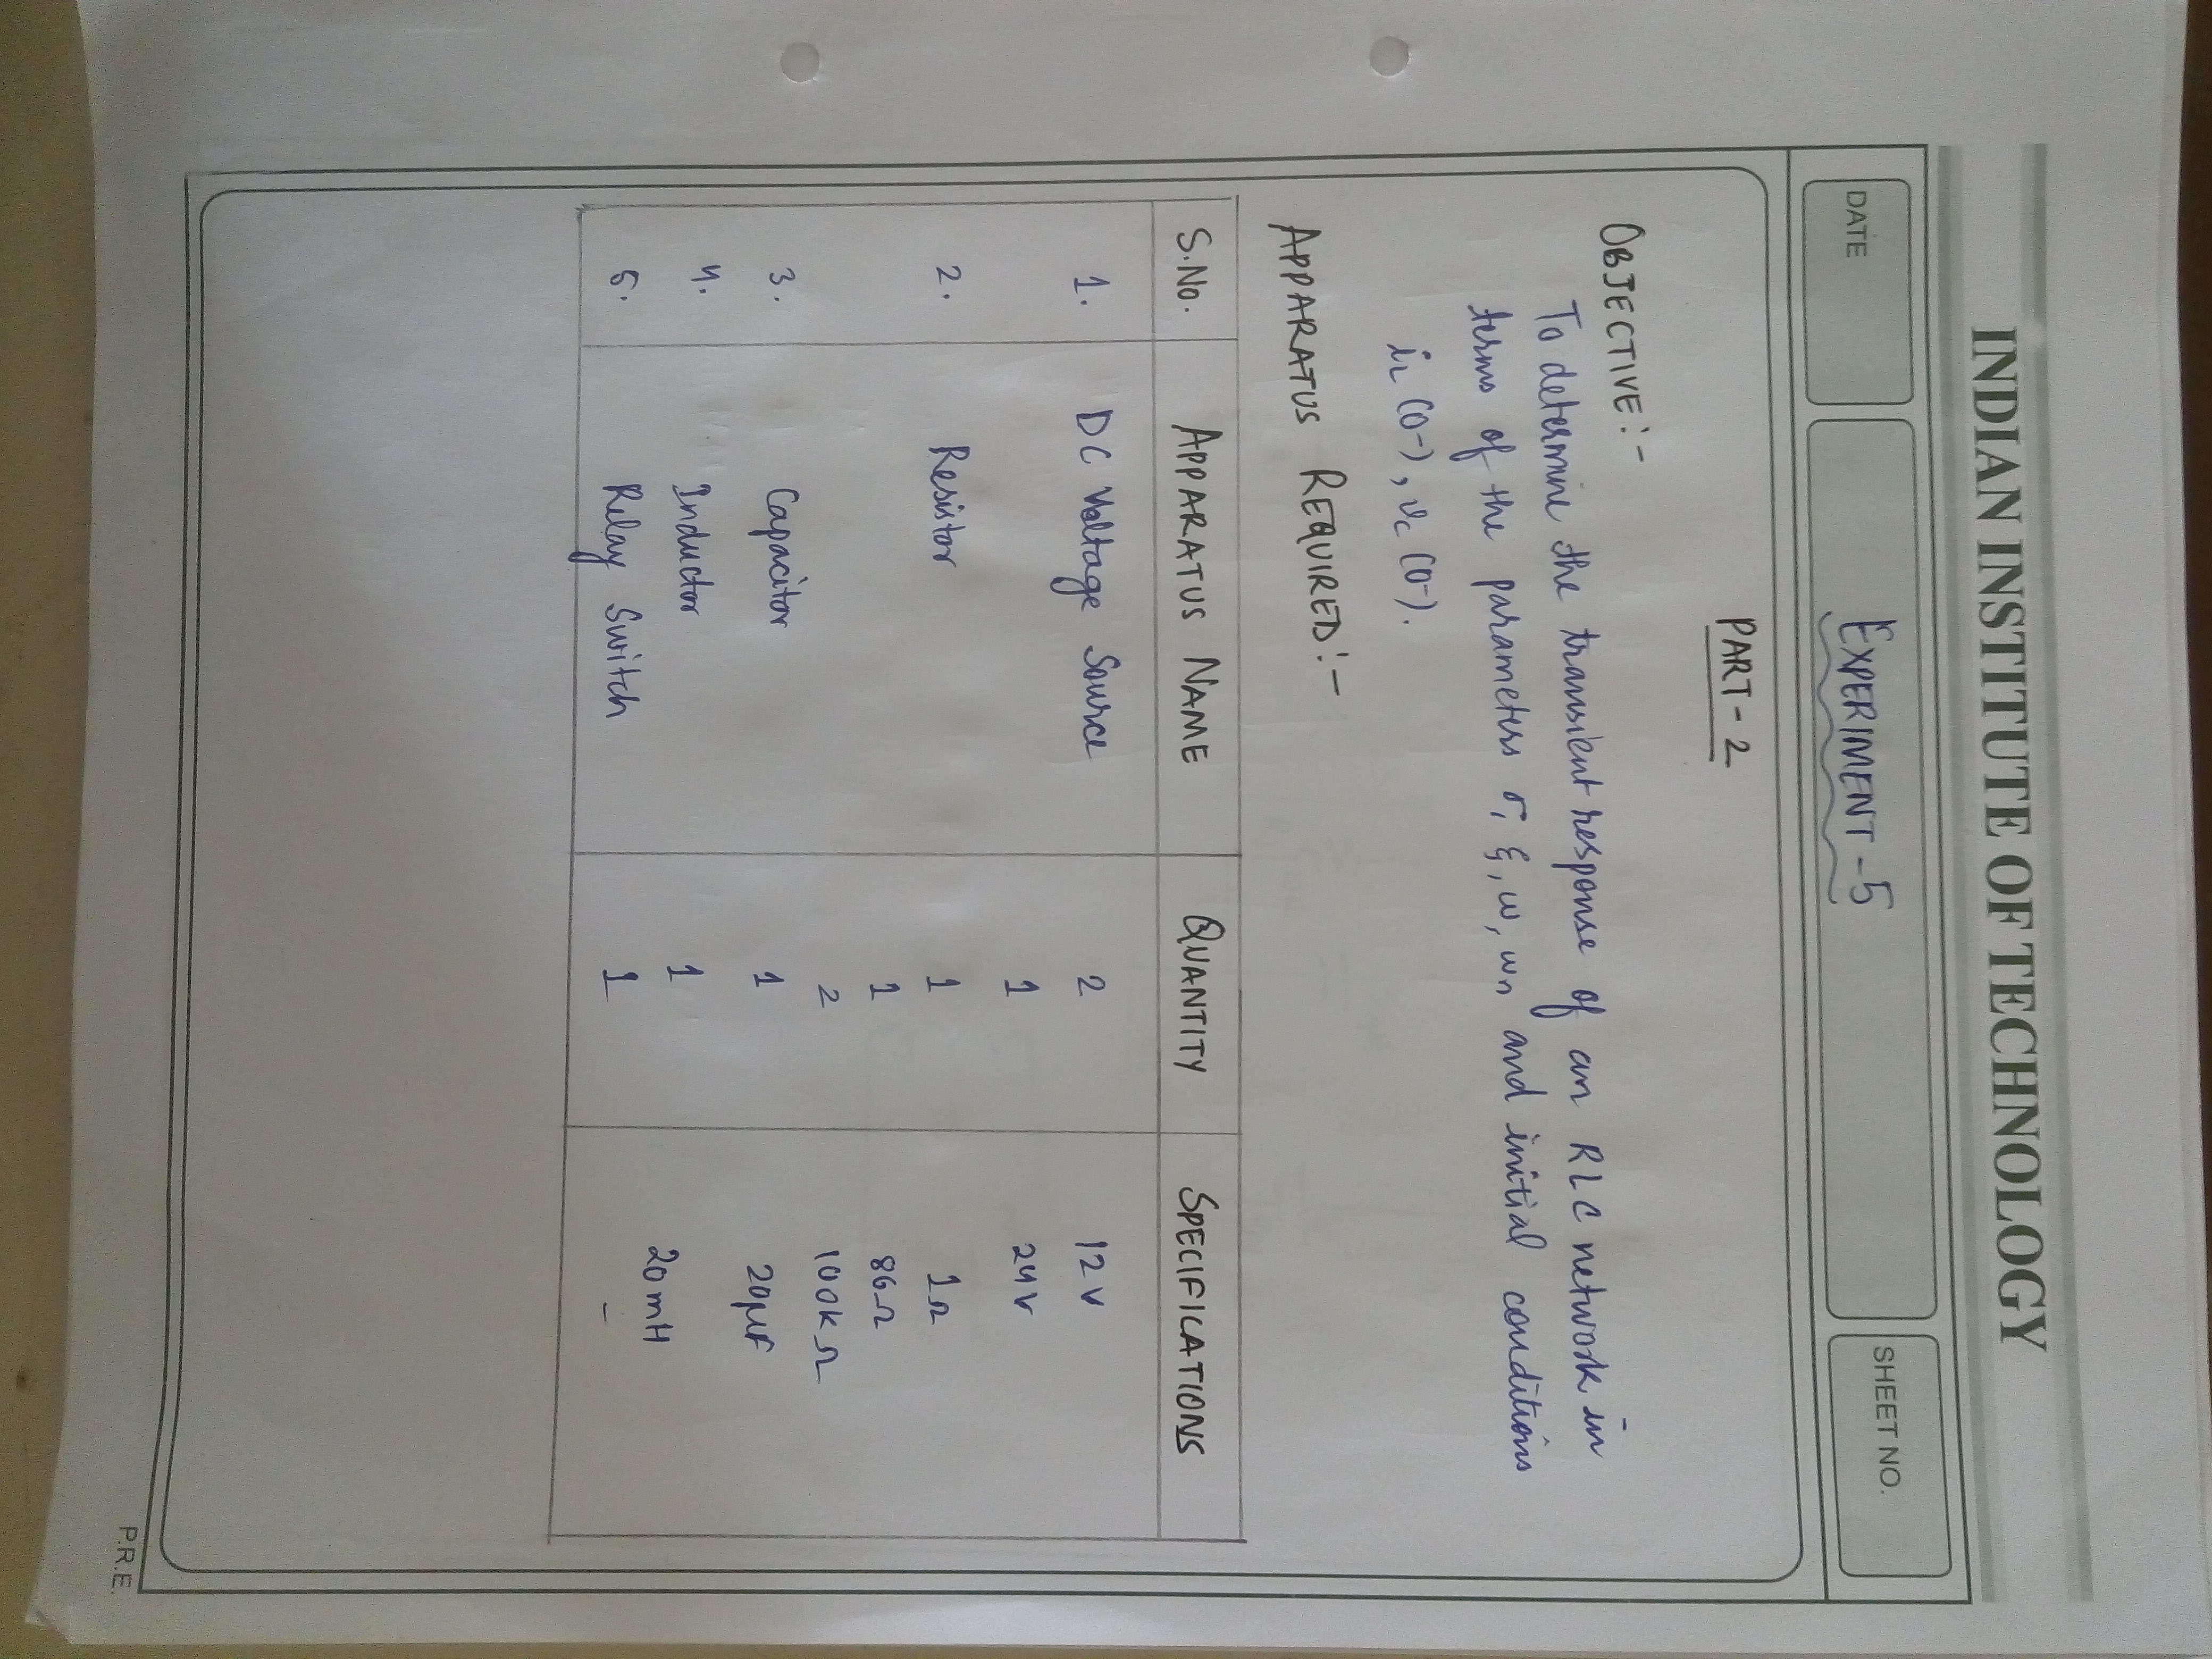 INDIAN INSTITUTE OF TECHNOLOGY
DATE
EXPERIMENT - 5
SHEET NO.
PART - 2
OBJECTIVE :-
To determine the transient response of an RLC network in
terms of the parameters σ, ξ, ω, ωn and initial conditions
iL (0-), vc (0-).
APPARATUS REQUIRED :-
S.No. APPARATUS NAME QUANTITY SPECIFICATIONS
1. DC Voltage Source 2 12 V
1 24 V
2. Resistor 1 1Ω
1 86Ω
2 100kΩ
3. Capacitor 1 20μF
4. Inductor 1 20mH
5. Relay Switch 1 -
P.R.E.